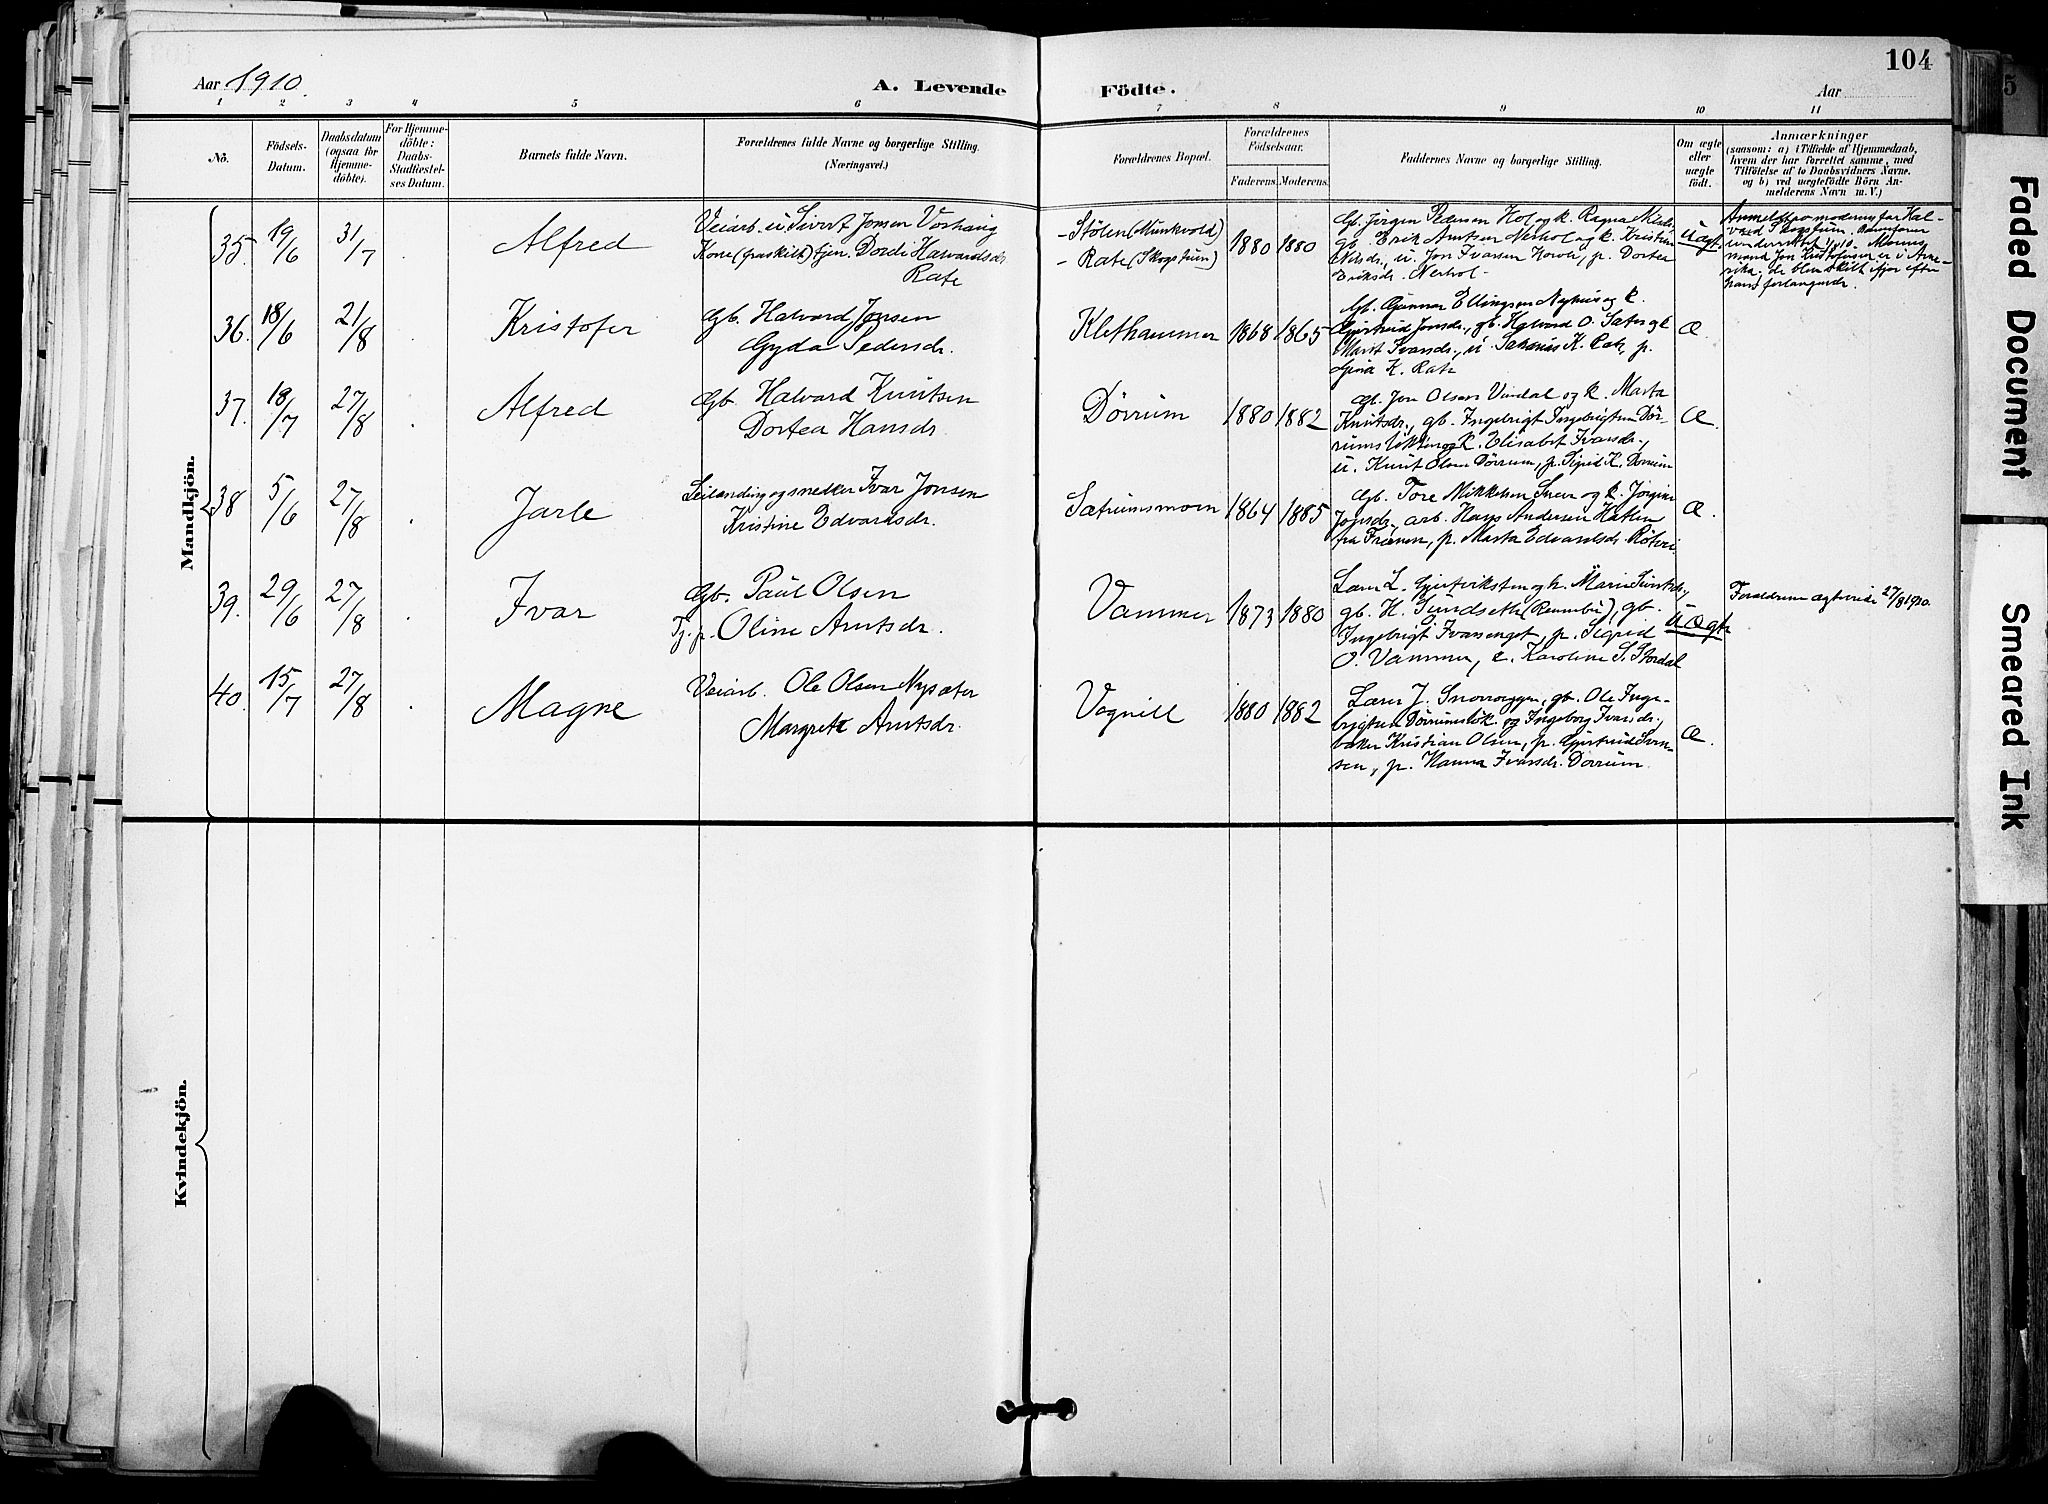 104
Aar 1910.
A. Levende Födte.
Aar
1 2 3 4 5 6 7 8 9 10 11
No.
Födsels-Datum.
Daabsdatum (ogsaa for Hjemme-döbte).
For Hjemme-döbte: Daabs-Stadfæstel-ses Datum.
Barnets fulde Navn.
Forældrenes fulde Navne og borgerlige Stilling.
(Næringsvei.)
Forældrenes Bopæl.
Forældrenes Födselsaar.
Faderens. Moderens.
Faddernes Navne og borgerlige Stilling.
Om ægte eller uægte födt.
Anmærkninger
(saasom: a) i Tilfælde af Hjemmedaab,
hvem der har forrettet samme, med
Tilföielse af to Daabsvidners Navne.
og b) ved uægtefödte Börn An-
melderens Navn m. V.)
Mandkjön.
35. 19/6 31/7 Alfred
Veiarb. u. Sivert Jonsen Vorhaug
Kone (fraskilt) tjen. Dordi Halvardsdr.
Rate
- Stölen (Munkvold)
- Rate (Skogstuen)
1880 1880
Gb. Jörgen Pedersen Hol og k. Ragna Nilsd.,
gb. Erik Arntsen Nerhol og k. Kristian
Nilsdr., u. Jon Ivarsen Horvli, p. Dortea
Eriksdr. Nerhol.
Uægt.
36. 18/6 21/8 Kristofer
Gb. Halvard Jonsen
Gyda Pedersdr.
Klethammer 1868 1865
Gb. Gunnar Ellingsen Nyhus og k.
Gjertrud Jonsdr., gb. Halvard O. Sæter og k
Marit Ivarsdr., u. K. Rate, p.
Gina K. Rate
Æ.
37. 18/7 27/8 Alfred
Gb. Halvard Knutsen
Dortea Hansdr.
Dörrum 1880 1882
Gb. Jon Olsen Vindal og k. Marta
Knutsdr., gb. Ingebrigt Ingebrigtsen Dör-
rumslökken og k. Elisabet Ivarsdr.,
u. Knut Olsen Dörrum, p. Sigrid K. Dörrum
Æ.
38 5/6 27/8 Jarle
Leilending og snedker Ivar Jonsen
Kristine Edvardsdr.
Sætrumsmoen 1864 1885
Gb. Tore Mikkelsen Snven og k. Jörgine
Jonsdr., arb. Hans Andersen Hatlen
fra Frænen, p. Marta Edvardsdr. Rötvei
Æ.
39. 29/6 27/8 Ivar
Gb. Paul Olsen
Tj. p. Oline Arntsdr.
Vammer 1873 1880
Lærer L. og k. Marie
gb. H. Sundseth (Rennebu), gb.
Ingebrigt Ivarsenget, p. Sigrid
O. Vammer, e. Karoline S. Stordal
Uægte
Forældrene egteviede 27/8 1910.
40. 15/7 27/8 Magne
Veiarb. Ole Olsen Nysæter
Margrete Arntsdr.
Vognill 1880 1882
Lærer J. Snorroeggen, gb. Ole Inge-
brigtsen Dörrumslök. og Ingeborg Ivarsdr.,
baker Kristian Olsen, p. Gjertrud Sven-
sen, p. Hanna Ivarsdr. Dörrum.
Æ.
Kvindekjön.
Faded Document
Smeared Ink
5